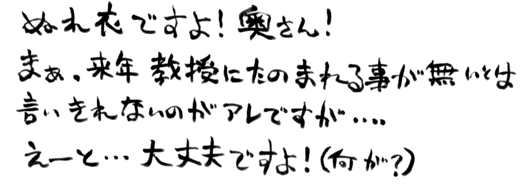 ぬれ衣ですよ！奥さん！
まぁ、来年教授にたのまれる事が無いとは
言いきれないのがアレですが‥‥
えーと…大丈夫ですよ！(何が？)